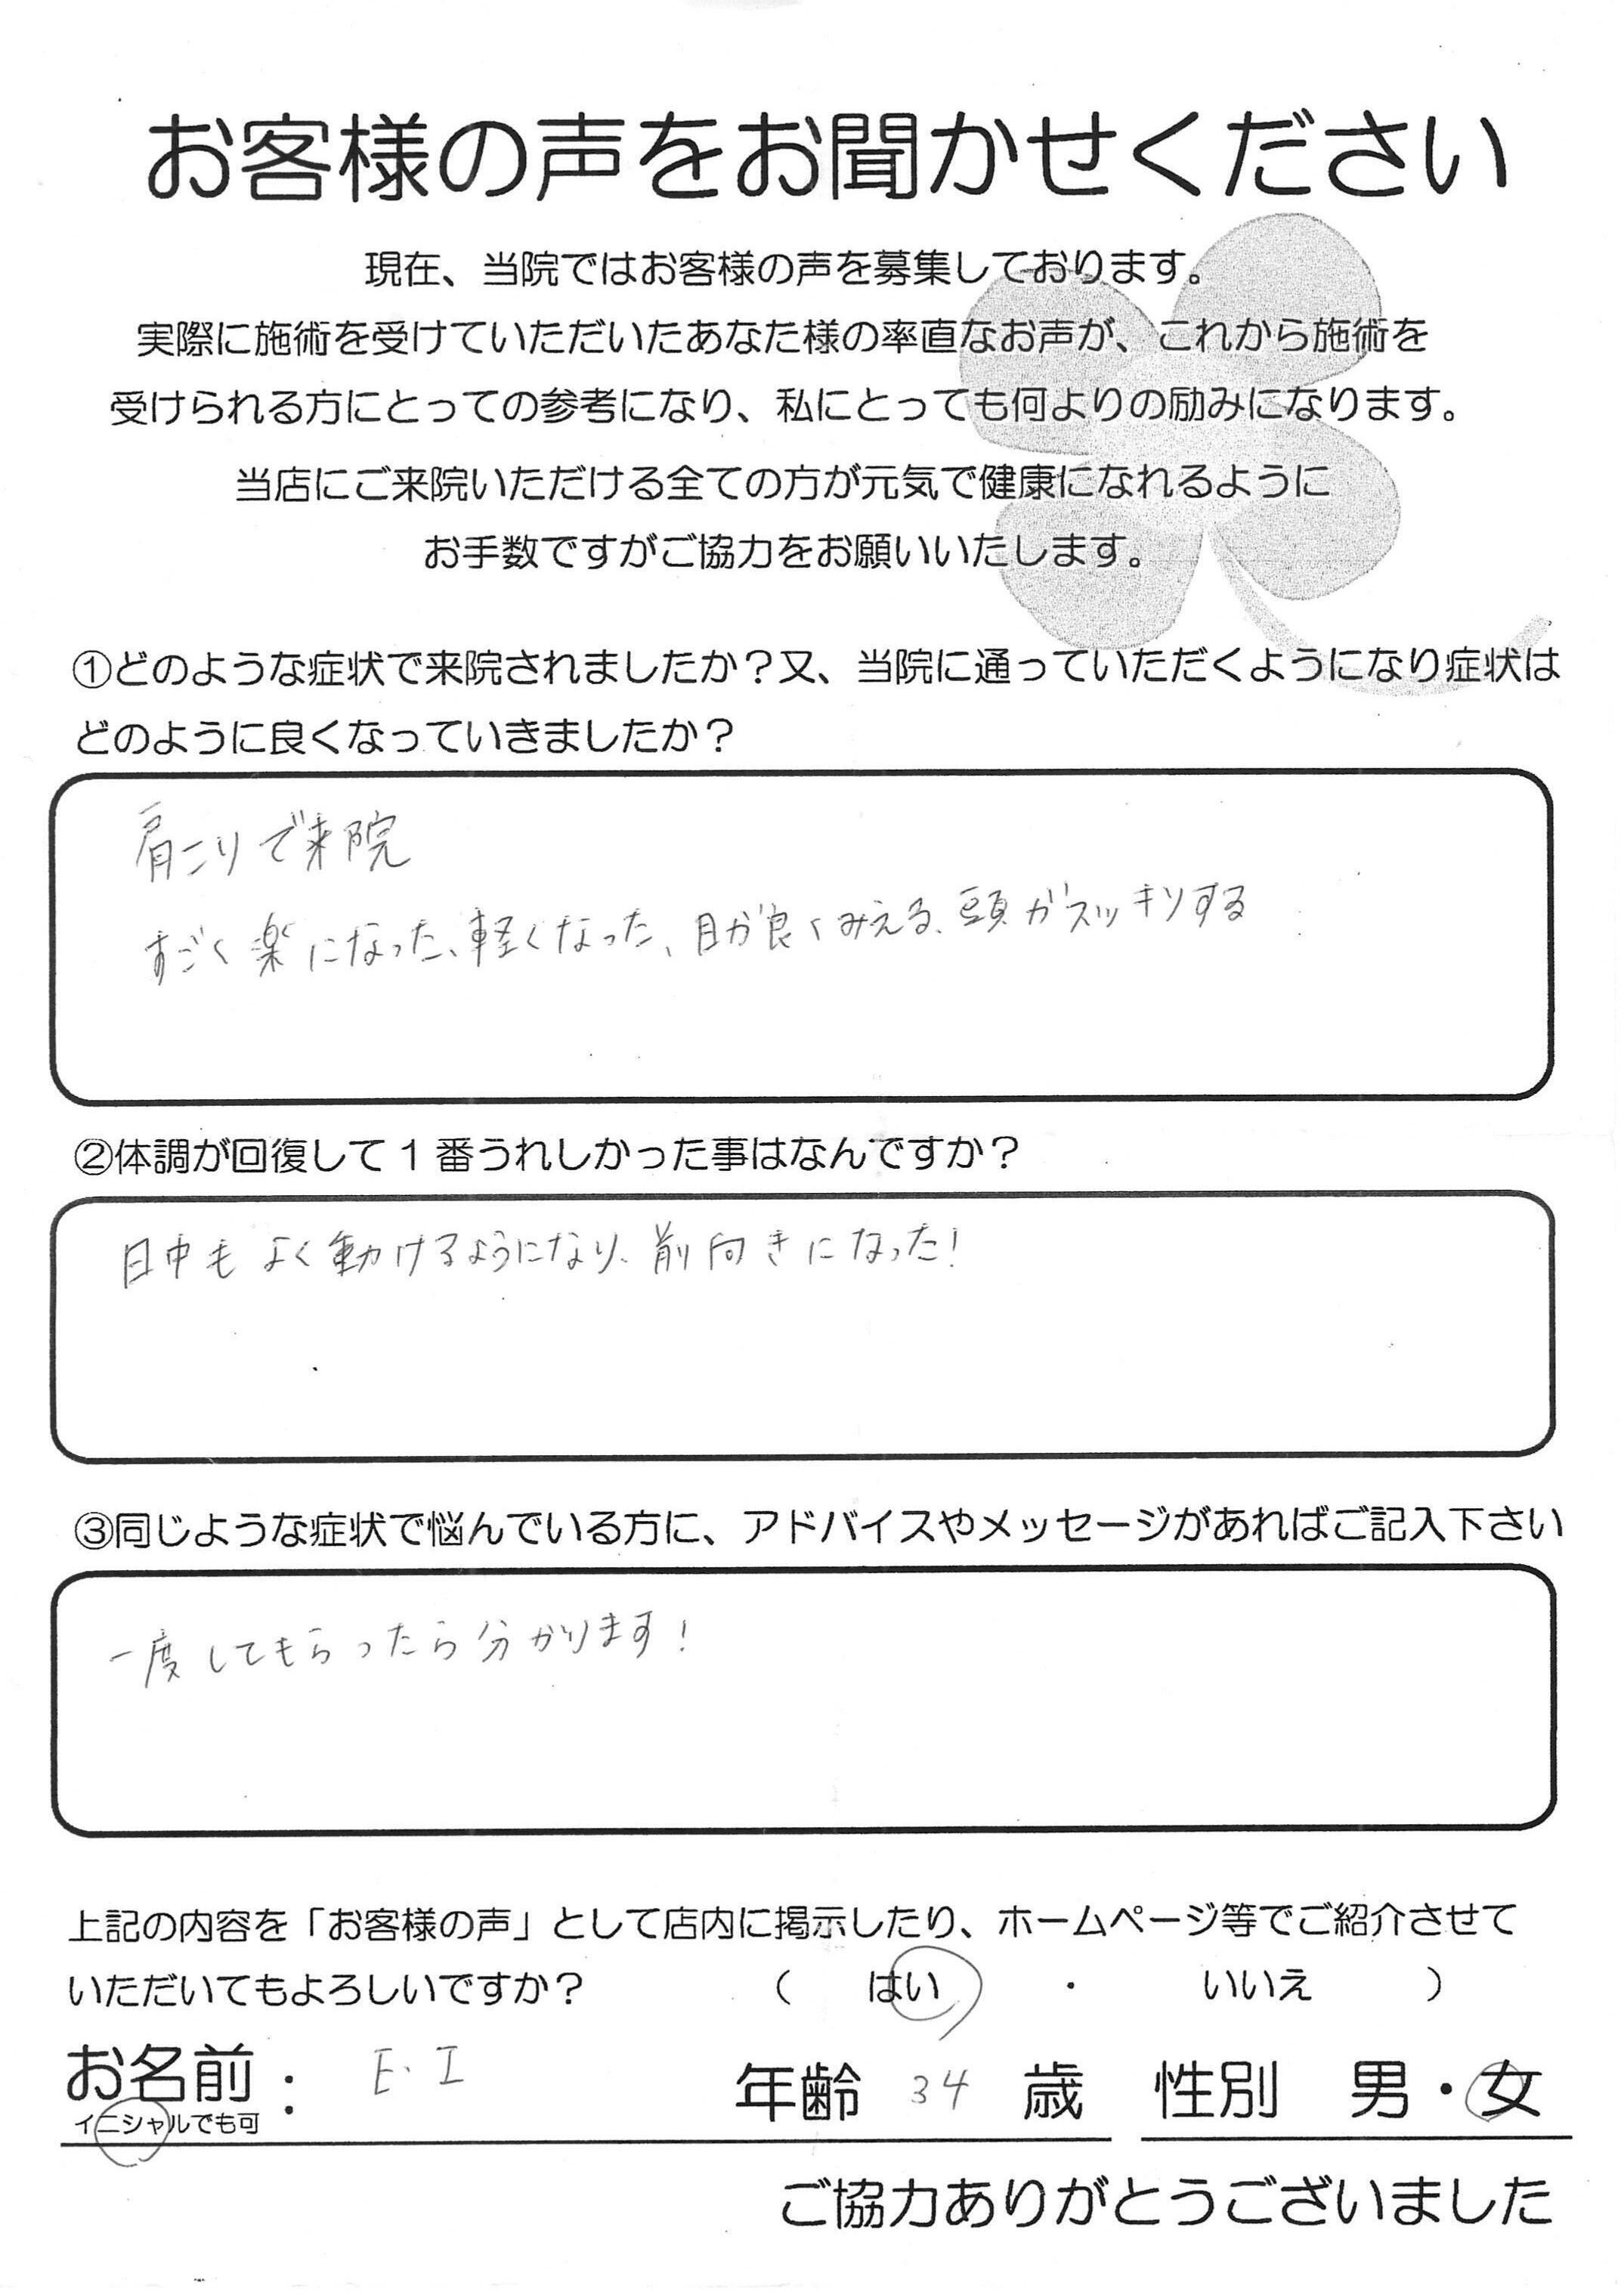 お客様の声をお聞かせください
現在、当院ではお客様の声を募集しております。
実際に施術を受けていただいたあなた様の率直なお声が、これから施術を
受けられる方にとっての参考になり、私にとっても何よりの励みになります。
当店にご来院いただける全ての方が元気で健康になれるように
お手数ですがご協力をお願いいたします。
①どのような症状で来院されましたか？又、当院に通っていただくようになり症状は
どのように良くなっていきましたか？
肩こりで来院
すごく楽になった、軽くなった、目が良くみえる、頭がスッキリする
②体調が回復して１番うれしかった事はなんですか？
日中もよく動けるようになり、前向きになった！
③同じような症状で悩んでいる方に、アドバイスやメッセージがあればご記入下さい
一度してもらったら分かります！
上記の内容を「お客様の声」として店内に掲示したり、ホームページ等でご紹介させて
いただいてもよろしいですか？ （ はい ・ いいえ ）
お名前： E.I 年齢 34 歳 性別 男・女
イニシャルでも可
ご協力ありがとうございました